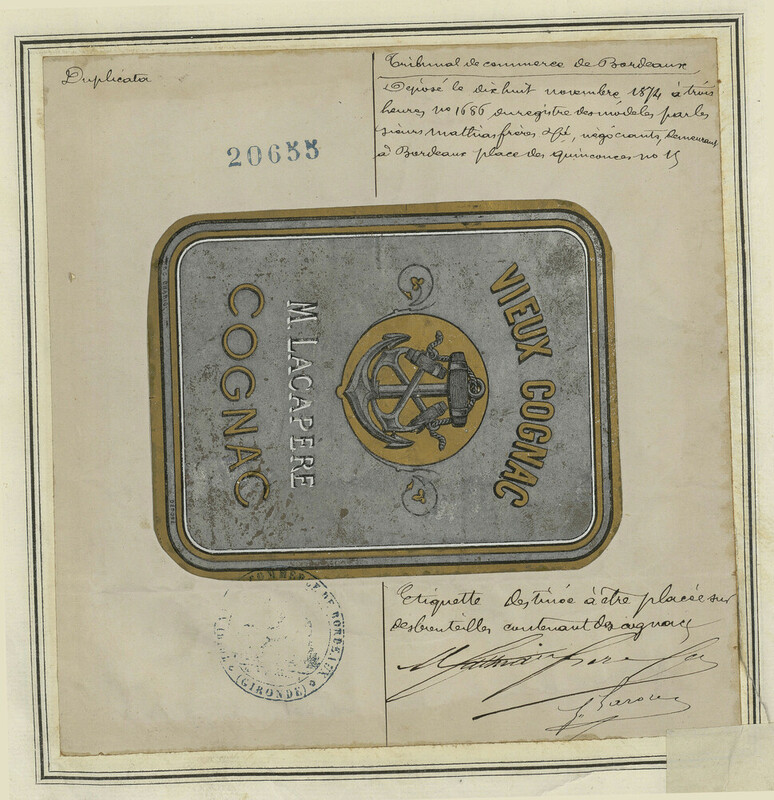 Duplicata
Tribunal de commerce de Bordeaux
Déposé le dix huit novembre 1874 à trois
heures no 1686 du registre des modèles par les
sieurs Mathias frères & Cie, négociants, demeurant
à Bordeaux place des quinconces no 15
20655
VIEUX COGNAC
M. LACAPERE
COGNAC
COMMERCE DE BORDEAUX
(GIRONDE)
Etiquette destinée à être placée sur
des bouteilles contenant des cognacs